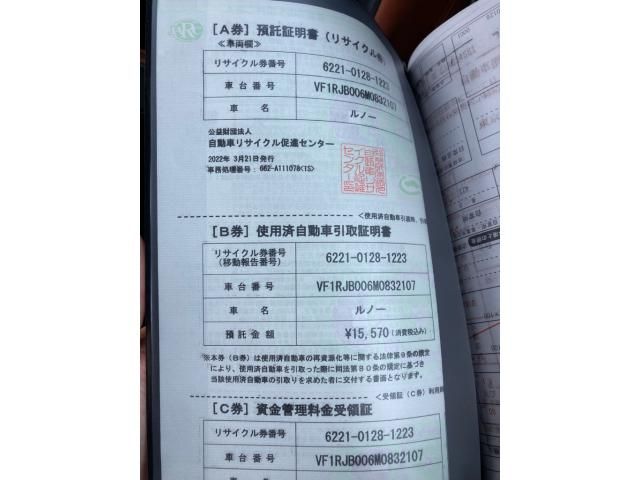 [A券] 預託証明書(リサイクル券)
≪車両欄≫
リサイクル券番号 6221-0128-1223
車台番号 VF1RJB006M0832107
車名 ルノー
公益財団法人
自動車リサイクル促進センター
2022年 3月21日発行
事務処理番号:662-A111078<1S>
<使用済自動車引渡時、
[B券] 使用済自動車引取証明書
リサイクル券番号
(移動報告番号) 6221-0128-1223
車台番号 VF1RJB006M0832107
車名 ルノー
預託金額 ¥15,570(消費税込み)
※本券(B券)は使用済自動車の再資源化等に関する法律第9条の規定
により、使用済自動車を引取った際に同法第80条の規定に基づき
当該使用済自動車の引取りを求めた者に交付する書面となります。
<受領証(C券)利用時
[C券] 資金管理料金受領証
リサイクル券番号 6221-0128-1223
車台番号 VF1RJB006M0832107